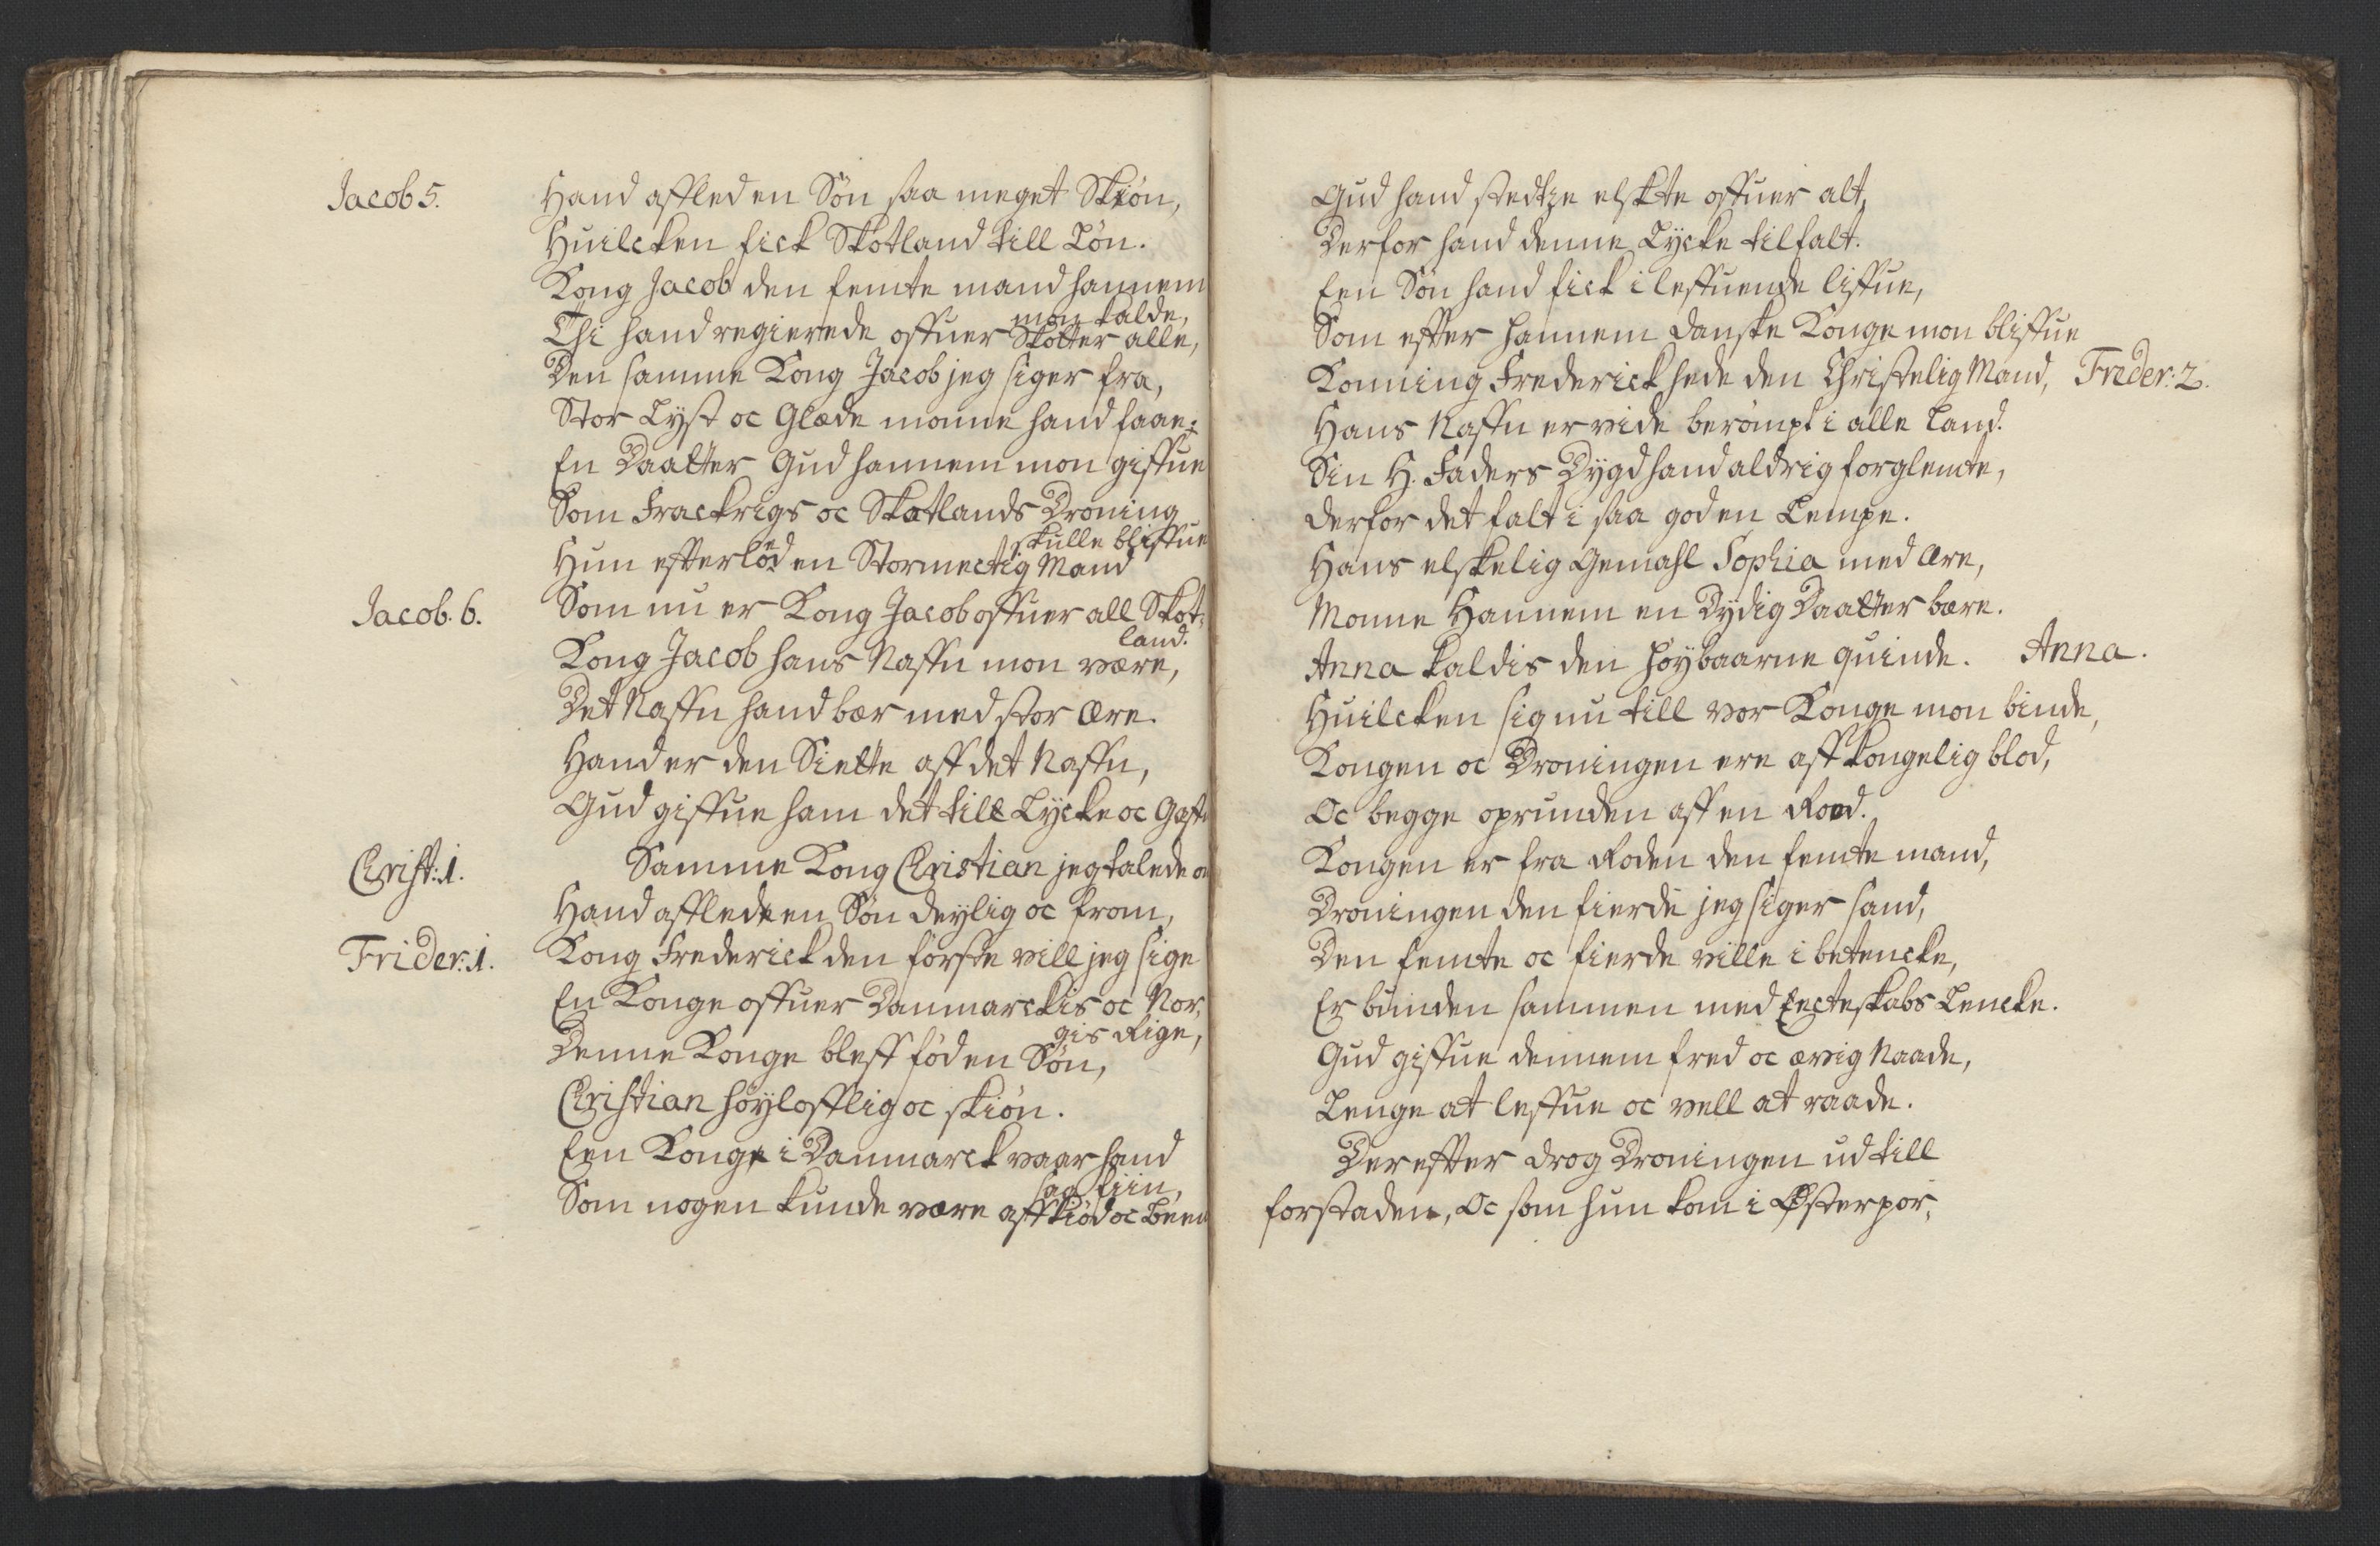 Jacob 5. Hand affled en Søn saa meget Skiøn,
Huilcken fick Skotland till Løn.
Kong Jacob den femte mand hannem
mon kalde,
Thi hand regierede offuer Skotter alle,
Den samme Kong Jacob jeg siger fra,
Stor Lyst oc Glæde monne hand faae:
En Daatter Gud hannem mon giffue
Som Frackrigs oc Skotlands Droning
skulle bliffue
Hun efterlod en Stormectig Mand
Jacob. 6. Som nu er Kong Jacob offuer all Skot-
land.
Kong Jacob hans Naffn mon være,
Det Naffn hand bær med stor Ære.
Hand er den Siette aff det Naffn,
Gud giffue ham det till Lycke oc Gaffn
Christ: 1. Samme Kong Christian jeg talede om
Hand affled en Søn deylig oc from,
Frider: 1. Kong Frederick den første vill jeg sige
En Konge offuer Danmarckis oc Nor-
gis Rige,
Denne Konge bleff fød en Søn,
Christian høylofflig oc skiøn.
Een Konge i Danmarck vaar hand
saa fiin,
Som nogen kunde være aff kiød oc Been
Gud hand stedtze elskte offuer alt,
Derfor hand denne Lycke tilfalt.
Een Søn hand fick i leffuende liffue,
Som efter hannem Danske Konge mon bliffue
Konning Frederick hede den Christelig Mand, Frider: 2.
Hans Naffn er vide berømpt i alle Land.
Sin H. Faders Dygd hand aldrig forglemte,
Derfor det falt i saa god en Lempe.
Hans elskelig Gemahl Sophia med Ære,
Monne Hannem en Dydig Daatter bære.
Anna kaldis den høybaarne quinde. Anna.
Huilcken sig nu till vor Konge mon binde,
Kongen oc Droningen ere aff kongelig blod,
Oc begge oprunden aff en Rod.
Kongen er fra Roden den femte mand,
Droningen den fierde jeg siger sand,
Den femte oc fierde ville i betencke,
Er bunden sammen med Ecteskabs Lencke.
Gud giffue dennem fred oc ævig Naade,
Lenge at leffue oc vell at raade.
Derefter drog Droningen ud till
forstaden, Oc som hun kom i Østerpor-